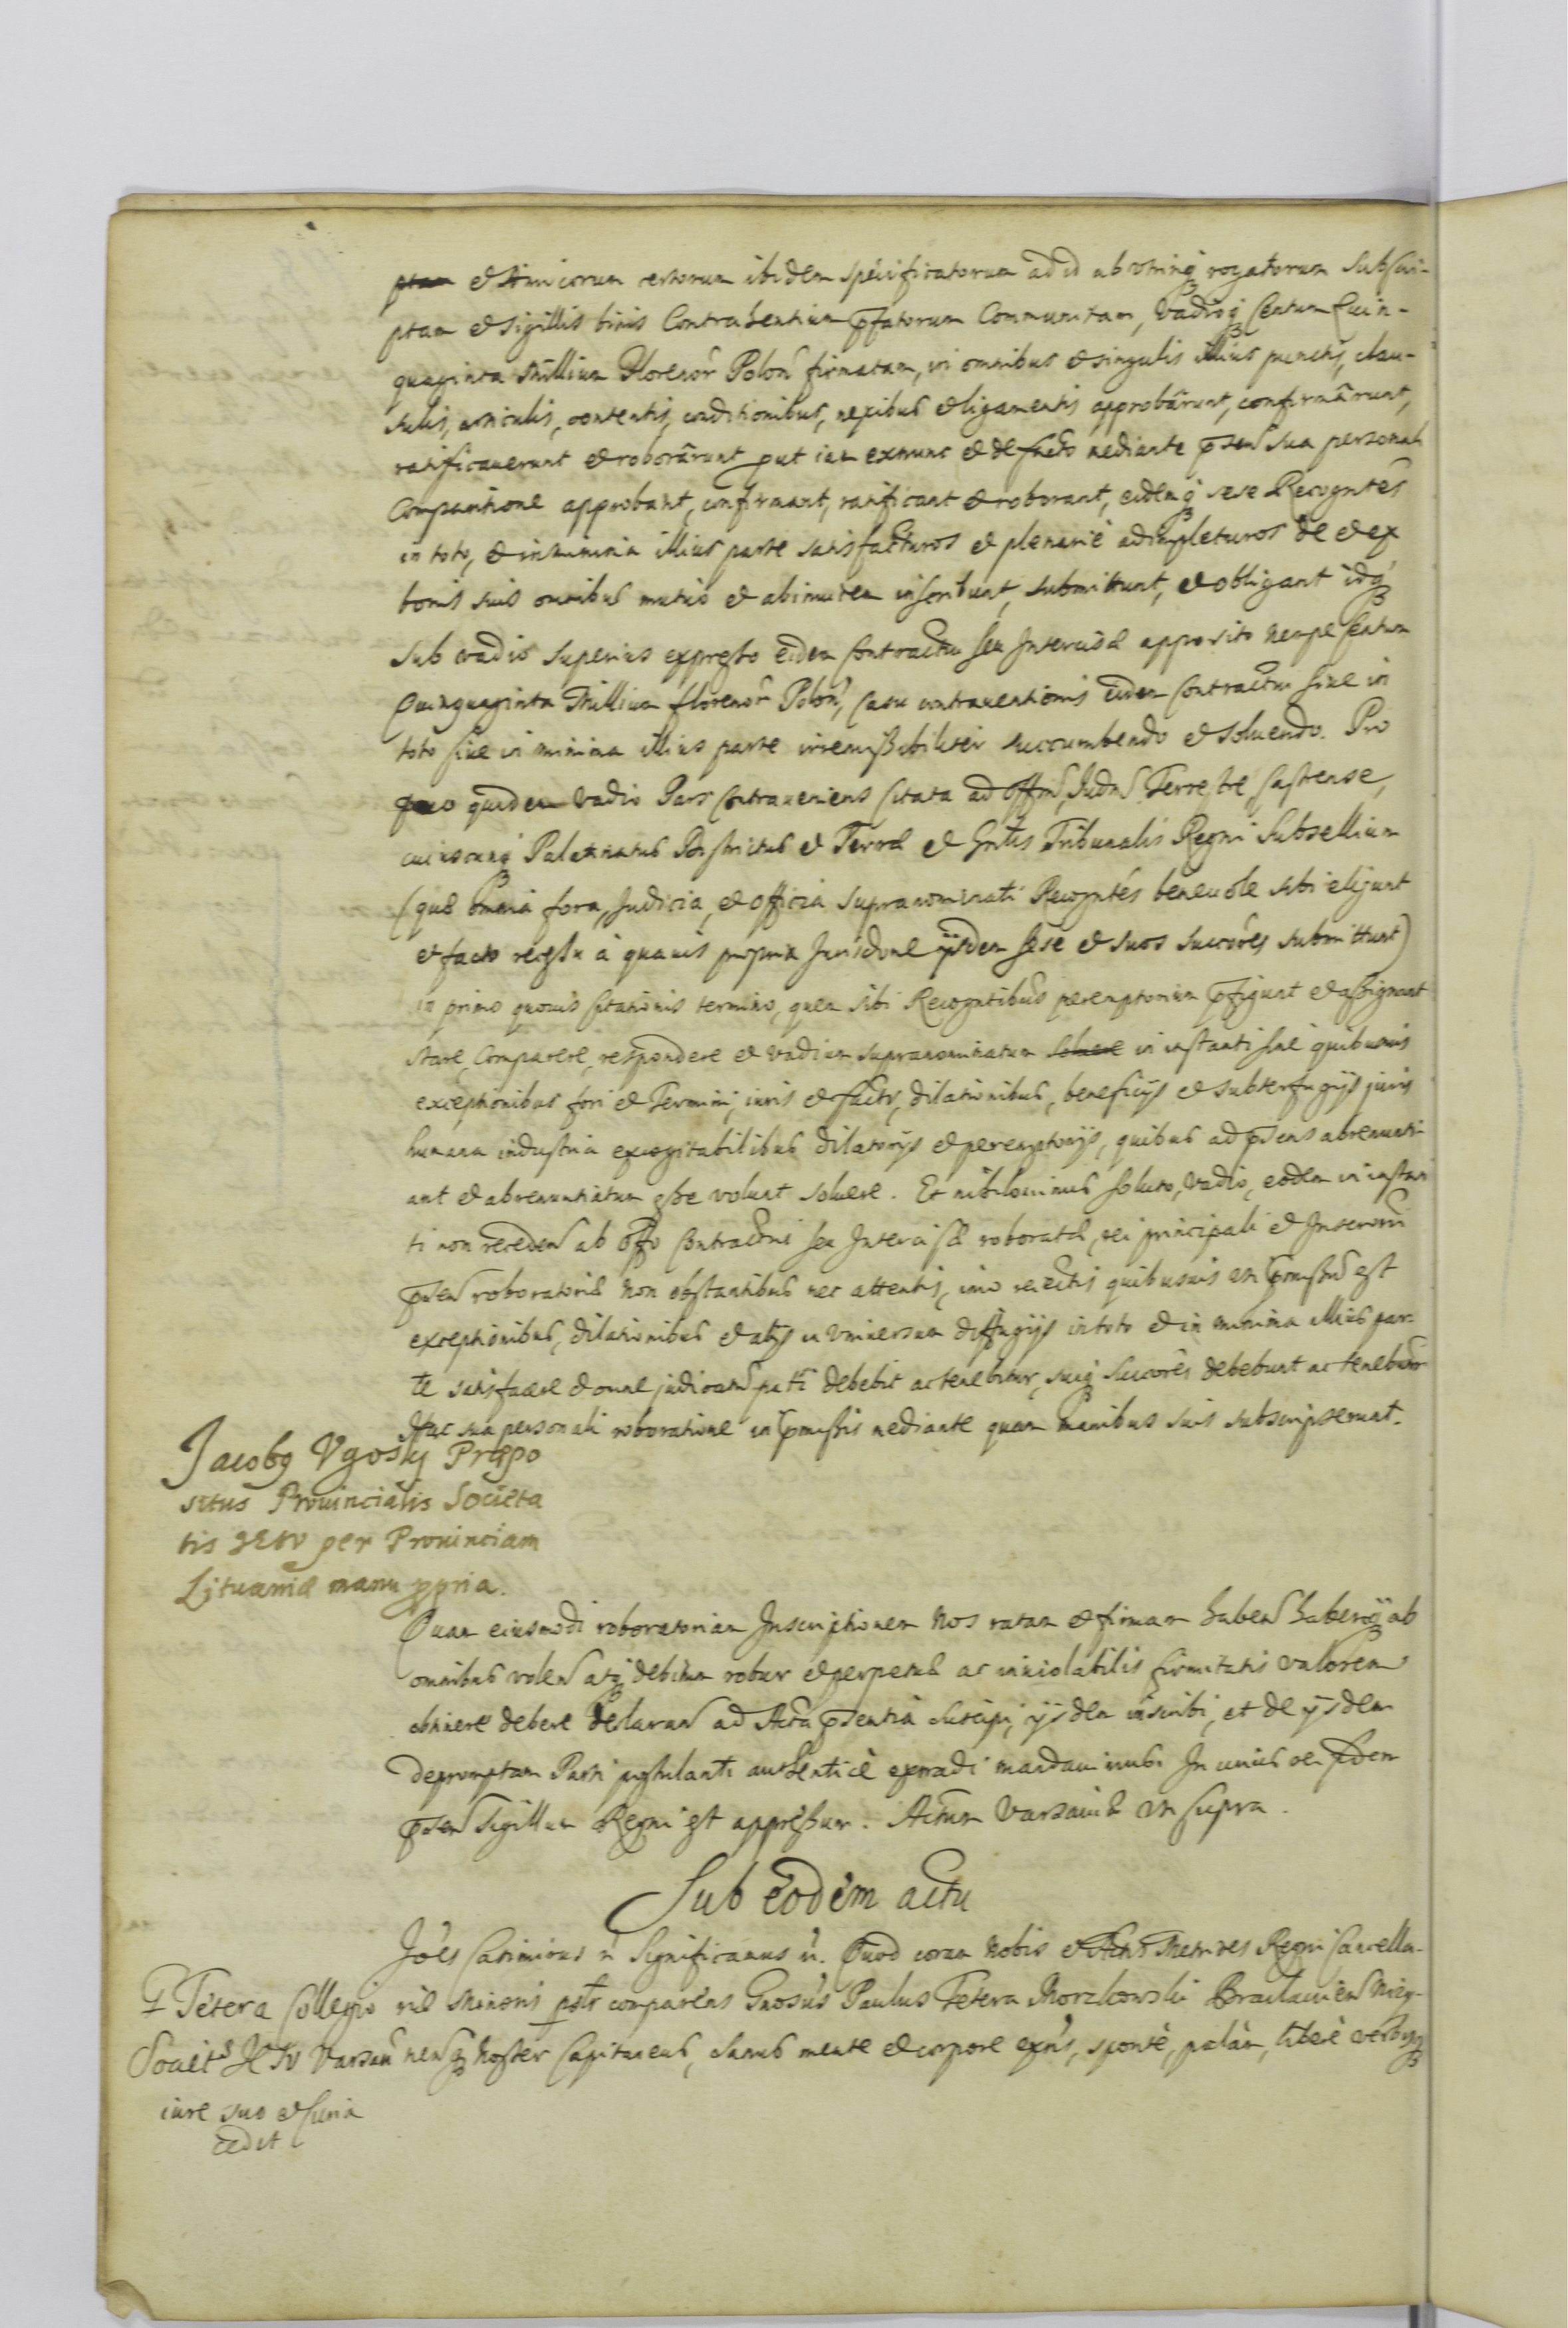 et Amicorum certorum ibidem specificatorum ad id ab utrinq rogatorum subscri-
ptam et sigillis binis Contrahentium pfatorum Communitam, Vadioq Centum Quin-
quaginta Millium Florenor Polon firmatam, in omnibus et singulis illius punctis, clau-
sulis, articulis, contentis, conditionibus, nexibus et ligamentis approbârunt, confirmârunt,
ratificauerunt et roborârunt put iam exnunc et de facto mediante psen sua personali
Comparitione approbant, confirmant, ratificant et roborant, eidemq sese Recogntes
in toto, et in minima illius parte satisfacturos et plenariè adimpleturos de et ex
bonis suis omnibus mutuò et abinuicem inscribunt, submittunt, et obligant idq
sub vadio superius expresso eidem Contractui seu Intercisæ apposito nempe Centum
Quinquaginta Millium florenor Polon, casu contrauentionis eidem Contractui siue in
toto siue in minima illius parte irremissibiliter succumbendo et soluendo. Pro
quo quidem vadio Pars Contraueniens Citata ad Offm, Judm Terrestre Castrense,
cuiuscunq Palatinatus Districtus et Terræ et Gntis Tribunalis Regni Subsellium
(quæ omnia fora, Judicia, et Officia supranominati Recogntes beneuole sibi eligunt
et facto recessu à quauis propria Jurisdone ijsdem sese et suos succores submittunt)
in primo quouis citationis termino, quem sibi Recogntibus peremptorium pfigunt et assignant
stare, Comparere, respondere et vadium supranominatum soluere in instanti sine quibusuis
exceptionibus fori et Termini, iuris et facti, dilationibus, beneficijs et subterfugijs iuris
humana industria excogitabilibus dilatorijs et peremptorijs, quibus ad psens abrenunti-
ant et abrenuntiatum esse volunt soluere. Et nihilominus soluto, vadio, eodem in instan
ti non receden ab offo Contractui seu Intercisæ roboratæ, rei principali et Inscrioni
psen roboratoriæ non obstantibus nec attentis, imo reiectis quibusuis uti pmissum est
exceptionibus, dilationibus et alijs in vniuersum diffugijs in toto et in minima illius par-
te satisfacere et omne judicatum pati debebit ac tenebitur, suiq succores debebunt ac tenebuntur
Hac sua personali roboratione in pmissis mediante quam manibus suis subscripserunt.
Jacobg Vgosky Præpo
situs Prouincialis Societa
tis JESV per Prouinciam
Lituaniæ manu ppria.
Quam eiusmodi roboratoriam Inscriptionem Nos ratam et firmam haben haberiq ab
omnibus volen atq debitum robur et perpetuæ ac inuiolabilis firmitatis valorem
obtinere debere declaran ad Acta psentia suscipi, ijsdem inscribi, et de ijsdem
depromptam Parti postulanti authenticè extradi mandauimus. In cuius rei fidem
psen Sigillum Regni est appressum. Actum Varsauiæ ut supra.
Sub eodem actu
Joês Casimirus n Significamus n. Quod coram Nobis et Actis Metrices Regni Cancella-
riæ Minoris psolr comparens Gnosus Paulus Tetera Morzkowski Braclauien Miey-
nensq noster Capitaneus, sanus mente et corpore exns, spontè, palàm, liberè verbisq
G Tetera Collegio
Societs JESV Varsau
iure suo et curia
cedit